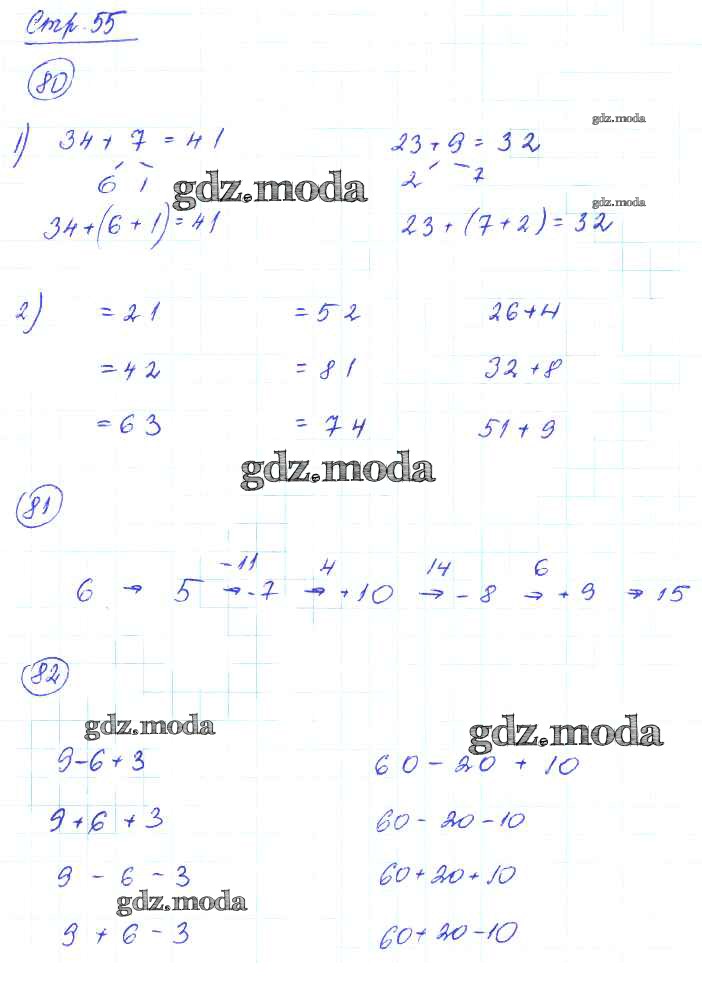 Стр. 55
80
gdz.moda
1) 34 + 7 = 41 23 + 9 = 32
6 1 2 7
gdz.moda gdz.moda
34 + (6 + 1) = 41 23 + (7 + 2) = 32
2) = 21 = 52 26 + 4
= 42 = 81 32 + 8
= 63 = 74 51 + 9
gdz.moda
81
-11 4 14 6
6 → 5 → -7 → +10 → -8 → +9 → 15
82
gdz.moda gdz.moda
9 - 6 + 3 60 - 20 + 10
9 + 6 + 3 60 - 20 - 10
9 - 6 - 3 60 + 20 + 10
gdz.moda
9 + 6 - 3 60 + 20 - 10